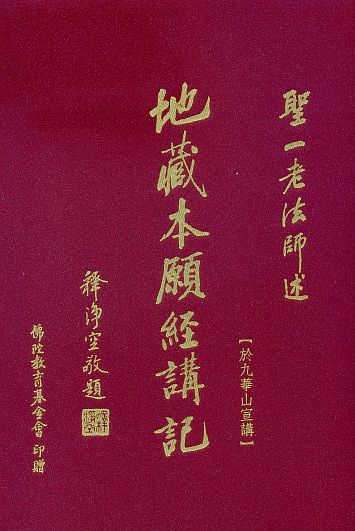 聖一老法師述
【於九華山宣講】
地藏本願經講記
釋淨空敬題
佛陀教育基金會 印贈